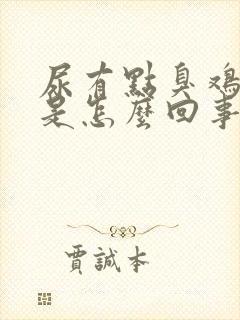 尿有點臭鸡
是怎麼回事
賈誠本